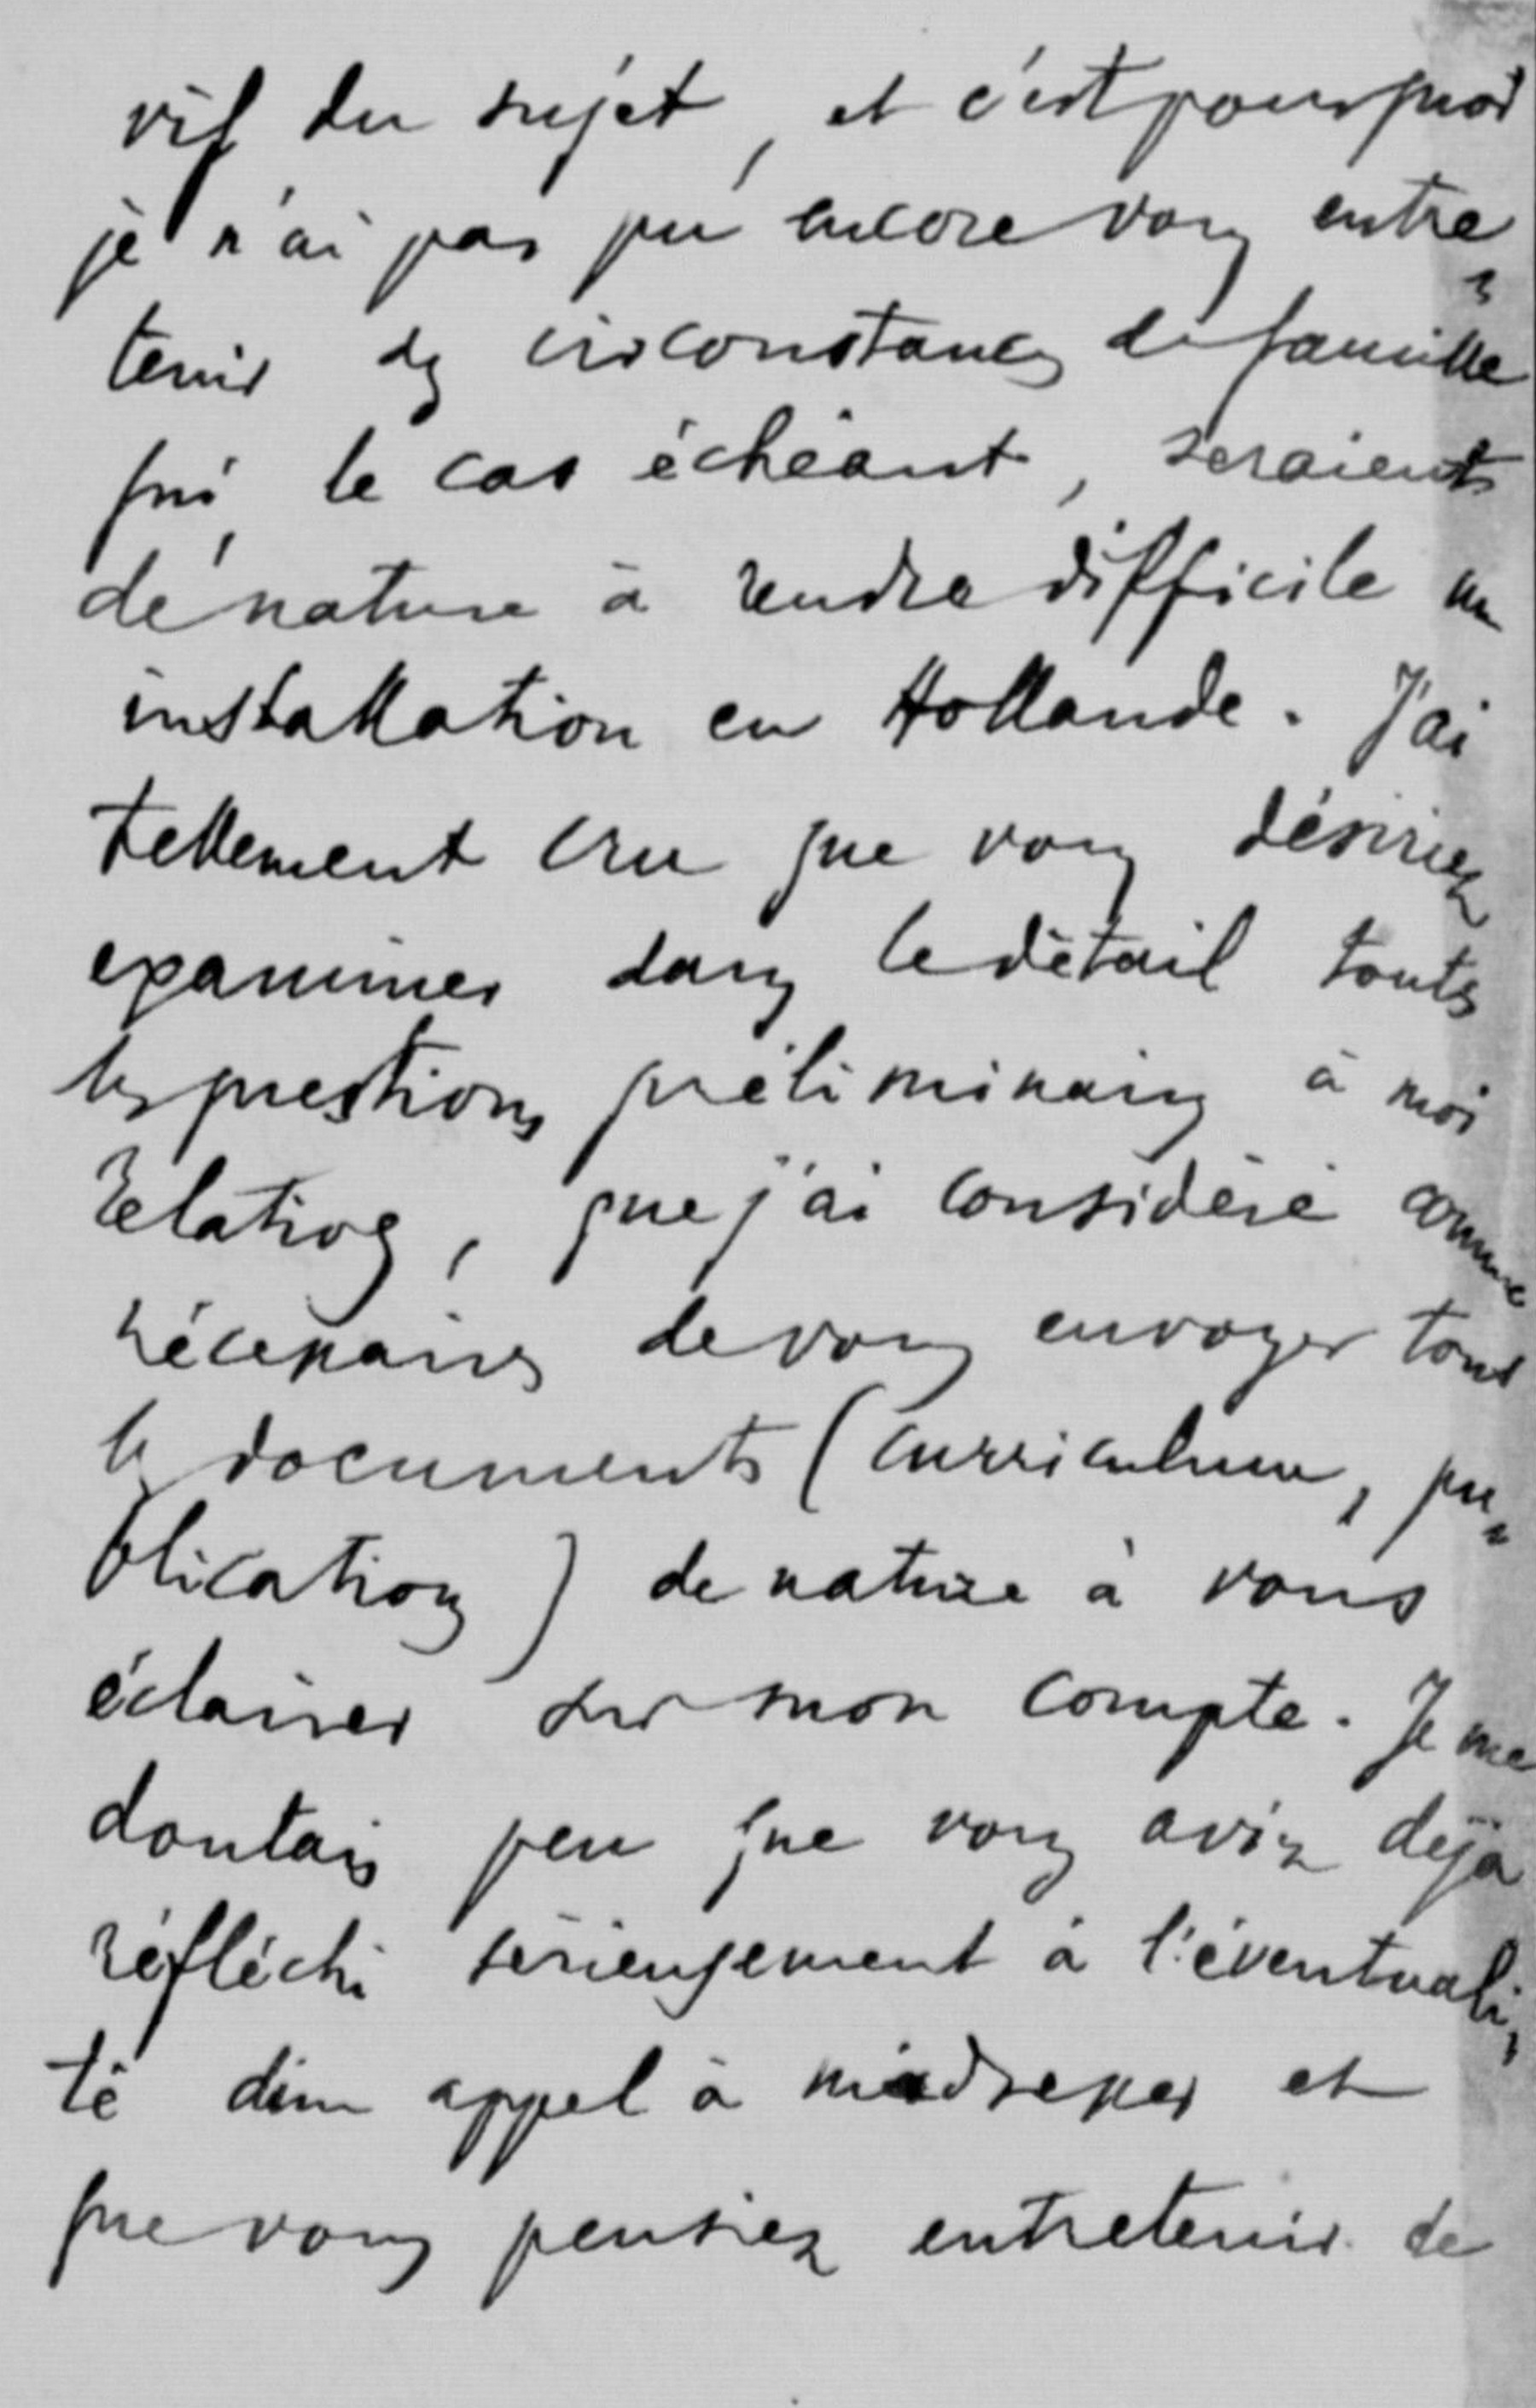 vif du sujet, et c'est pourquoi
je n'ai pas pu encore vous entre-
tenir des circonstances de famille
qui, le cas échéant, seraient
de nature à rendre difficile une
installation en Hollande. J'ai
tellement cru que vous désiriez
examiner dans le détail toutes
les questions préliminaires à moi
relatives, que j'ai considéré comme
nécessaires de vous envoyer tous
les documents (curriculum, pu-
blications) de nature à vous
éclairer sur mon compte. Je me
doutais peu que vous aviez déjà
réfléchi sérieusement à l'éventuali-
té d'un appel à m'adresser et
que vous pensiez entretenir de